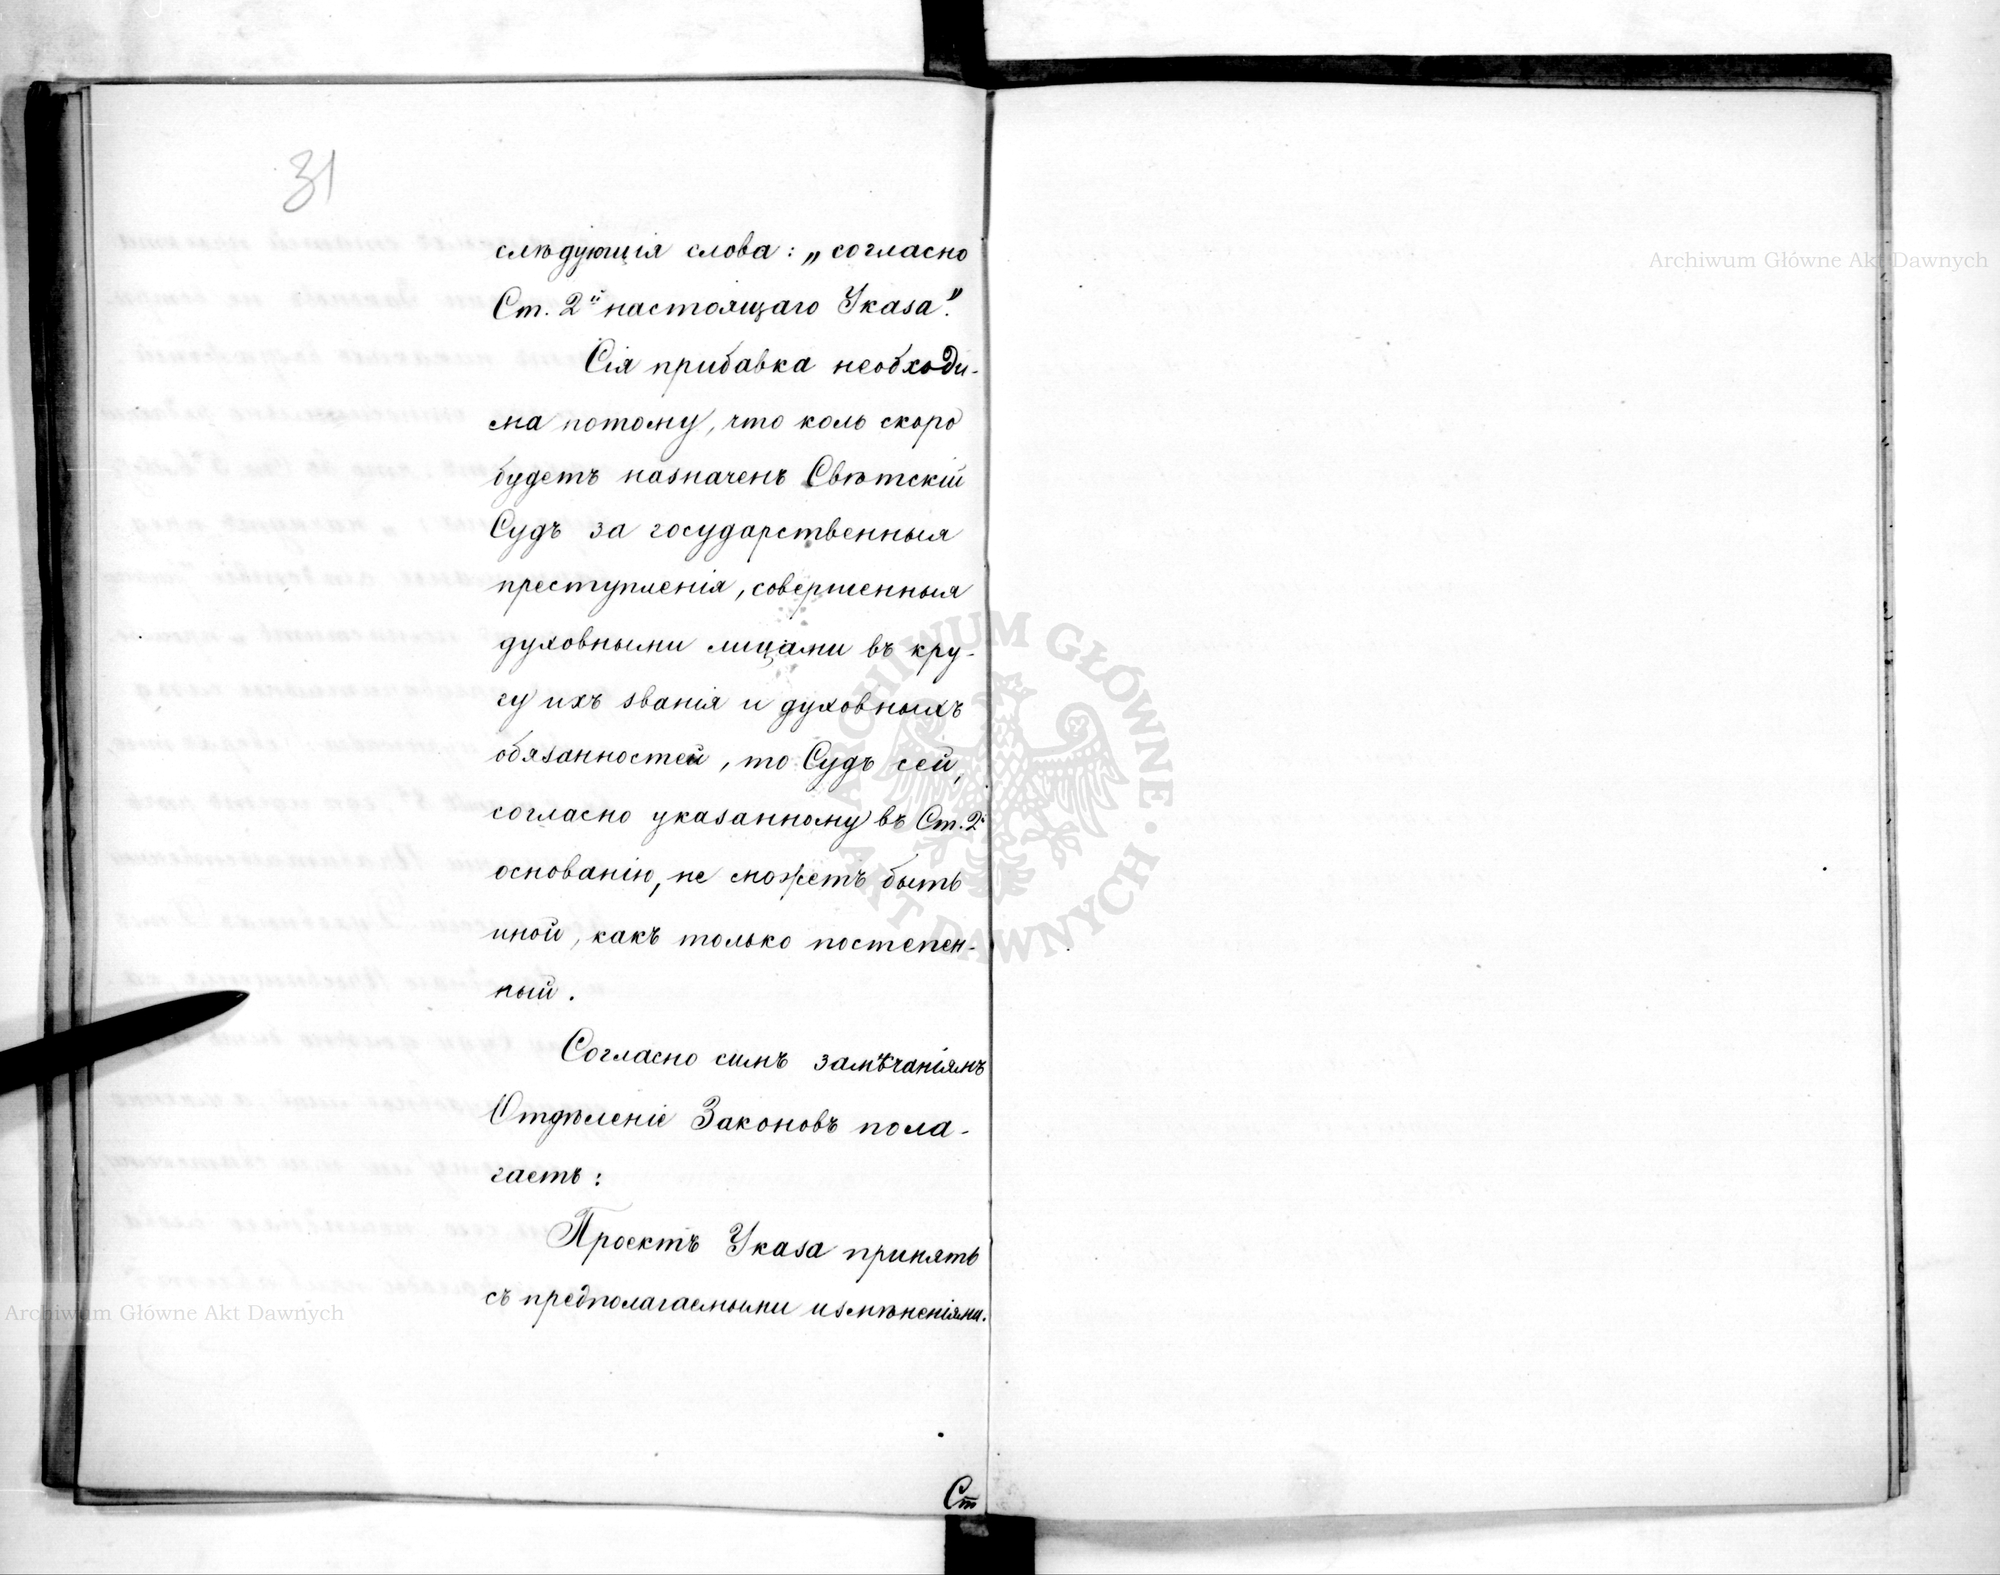 31
слѣдующія слова: „согласно
Ст. 2й настоящаго Указа".
Сія прибавка необходи-
ма потому, что коль скоро
будетъ назначенъ Свѣтскій
Судъ за государственныя
преступленія, совершенныя
духовными лицами въ кру-
гу ихъ званія и духовныхъ
обязанностей, то Судъ сей,
согласно указанному въ Ст. 2й
основанію, не можетъ быть
иной, какъ только постепен-
ный.
Согласно симъ замѣчаніямъ
Отдѣленіе Законовъ пола-
гаетъ:
Проектъ Указа принять
съ предполагаемыми измѣненіями.
Ст
Archiwum Główne Akt Dawnych
Archiwum Główne Akt Dawnych
ARCHIWUM GŁÓWNE · AKT DAWNYCH